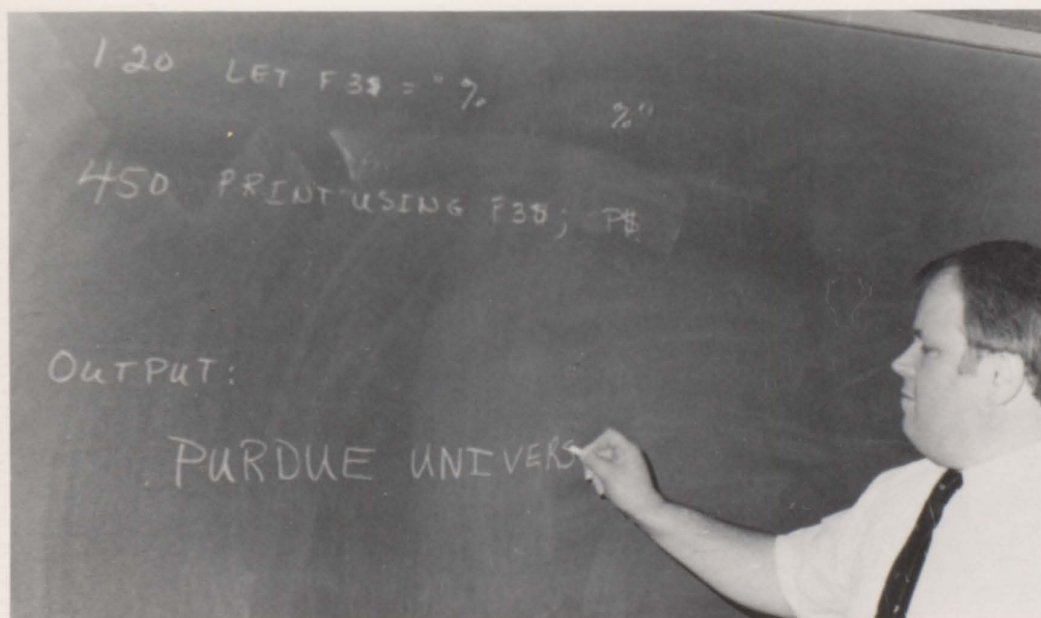 120 LET F3$ = "% %"
450 PRINT USING F3$; P$
OUTPUT:
PURDUE UNIVERS